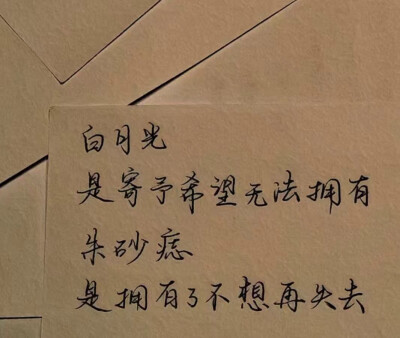 白月光
是寄予希望无法拥有
朱砂痣
是拥有了不想再失去